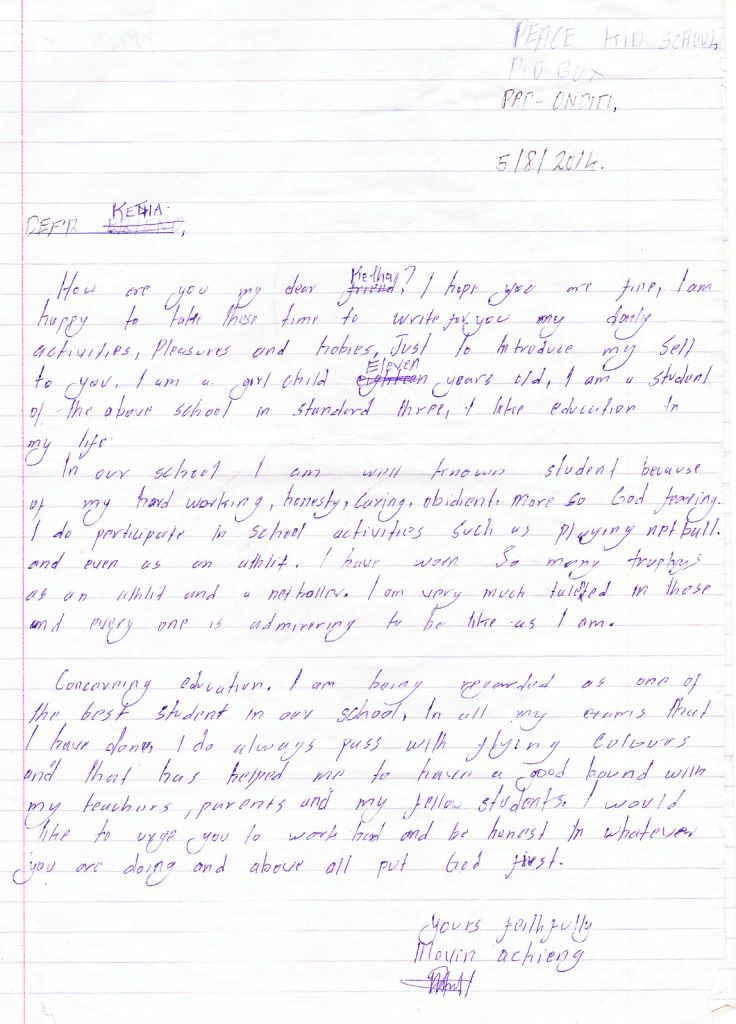 PEACE KID SCHOOL,
P.O BOX
PAP-ONDITI,
5/8/2014.
KETHA.
DEAR FRIEND,
Ketha
How are you my dear friend? I hope you are fine, I am
happy to take these time to write for you my daily
activities, Pleasures and hobies, Just to Introduce my self
Eleven
to you. I am a girl child eighteen years old, I am a student
of the above school in standard three, I like education In
my life.
In our school I am well known student because
of my hard working, honesty, caring, obidient. more so God fearing.
I do participate in school activities such as playing netball.
and even as an athlit. I have worn So many trophys
as an athlit and a netballer. I am very much talented in these
and every one is admirering to be like as I am.
Concerning education. I am being regarded as one of
the best student in our school, In all my exams that
I have done, I do always pass with flying Colours
and that has helped me to have a good bound with
my teachers, parents and my fellow students. I would
like to urge you to work had and be honest In whatever
you are doing and above all put God first.
Yours faithfully
Movin achieng